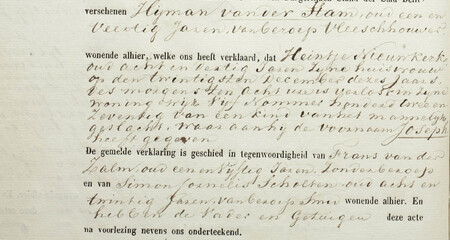 verschenen Hyman van der Stam, oud een en
Veertig Jaren, van beroep Vleeschhouwer
wonende alhier, welke ons heeft verklaard, dat Heintje Nieuwkerk
oud acht en dertig Jaren zyne huisvrouw
op den twintigsten December dezes Jaars,
des morgens ten acht ure is verlost in zyne
woning Wyk Vyf Nommer honderd twee en
Zeventig van een kind van het mannelyk
geslacht, waar aan hy de voornaam Joseph
heeft gegeven
De gemelde verklaring is geschied in tegenwoordigheid van Frans van der
Zalm, oud een en Vyftig Jaren, Zonder beroep
en van Simon Cornelis Scholten oud acht en
twintig Jaren, van beroep Smid wonende alhier. En
hebben de Vader en Getuigen deze acte
na voorlezing nevens ons onderteekend.